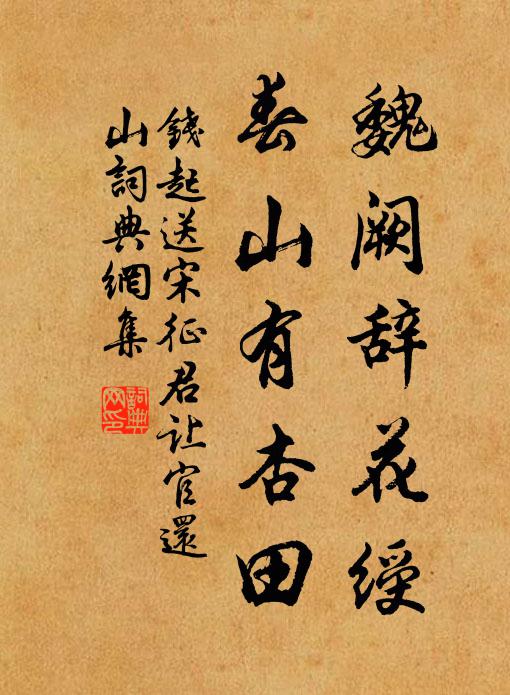 魏阙辞花绶
春山有杏田
錢起送宋征君让官還
山詞典網集
詞典
网印